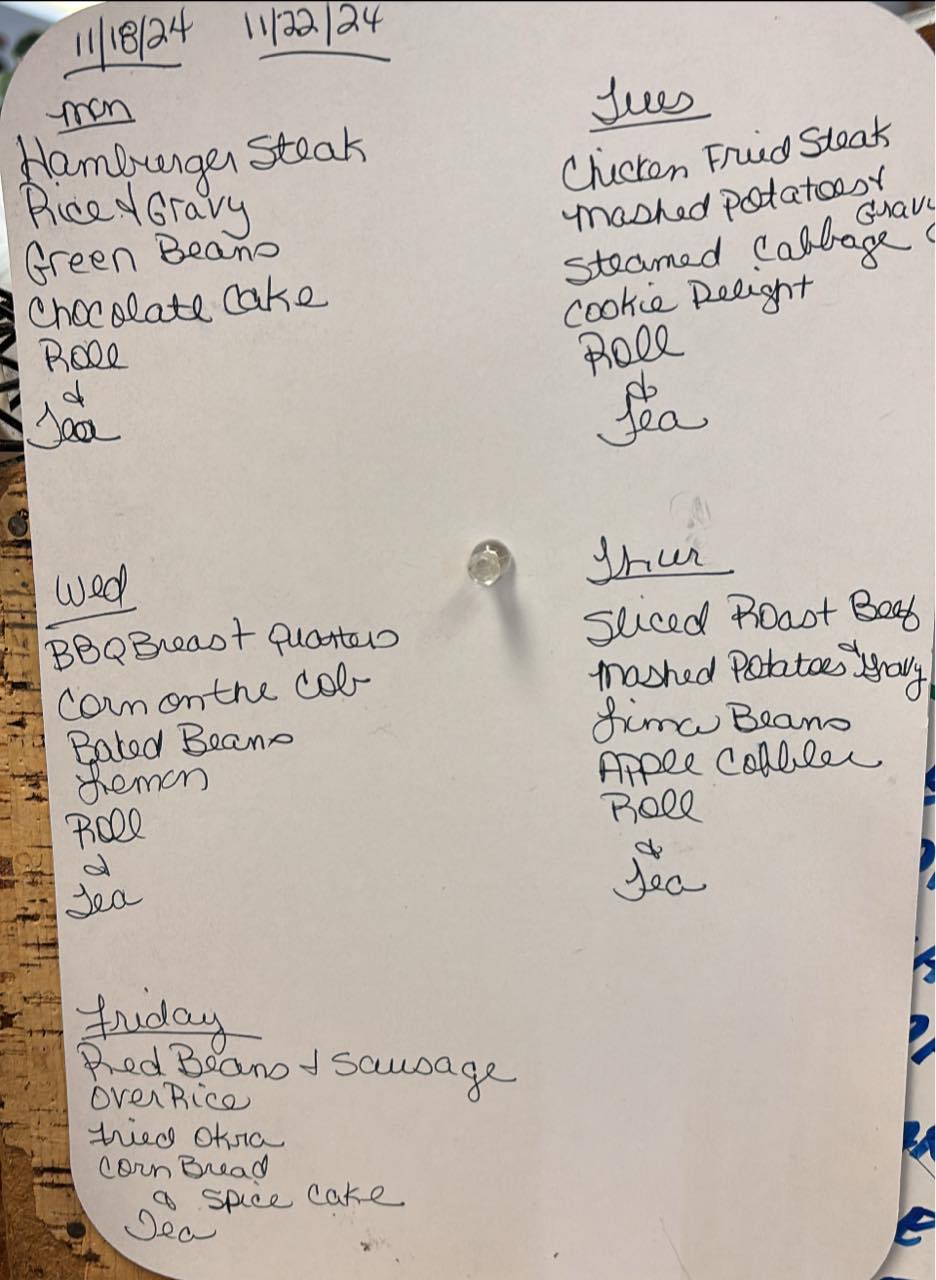 11/18/24 11/22/24
Mon
Hamburger Steak
Rice & Gravy
Green Beans
Chocolate Cake
Roll
&
Tea
Tues
Chicken Fried Steak
Mashed Potatoes &
Gravy
Steamed Cabbage
Cookie Delight
Roll
&
Tea
Wed
BBQ Breast Quarters
Corn on the Cob
Baked Beans
Lemon
Roll
&
Tea
Thur
Sliced Roast Beef
Mashed Potatoes & Gravy
Lima Beans
Apple Cobbler
Roll
&
Tea
Friday
Red Beans & Sausage
Over Rice
Fried Okra
Corn Bread
& Spice Cake
Tea